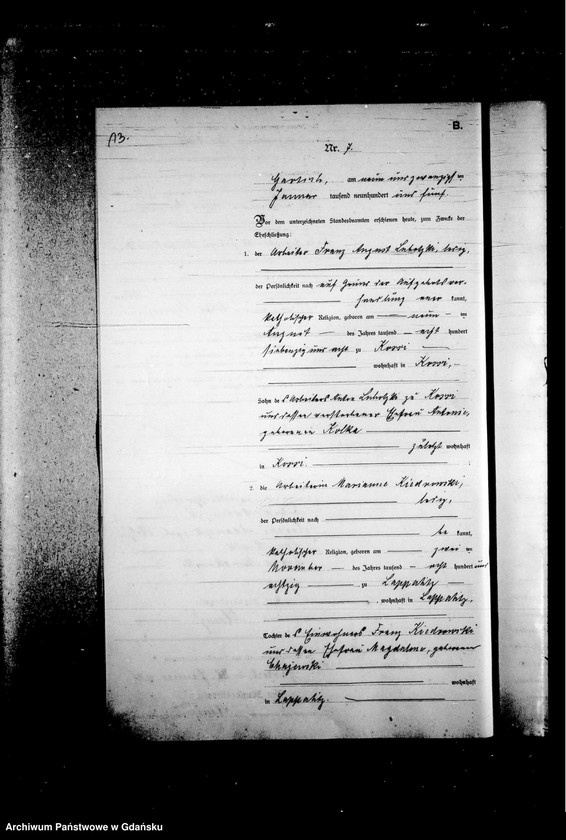 13.
B.
Nr. 7.
am neun und zwanzigsten
Januar tausend neunhundert und fünf.
Vor dem unterzeichneten Standesbeamten erschienen heute, zum Zwecke der
Eheschließung:
1. der Arbeiter Franz August ledig,
der Persönlichkeit nach auf Grund der Aufgebotsver-
handlung kannt,
katholischer Religion, geboren am neun
August des Jahres tausend acht hundert
siebenzig und acht zu
wohnhaft in
Sohn des Arbeiters Anton zu
und dessen verstorbener Ehefrau Antonie,
geborenen Kolka
zuletzt wohnhaft
in
2. die Arbeiterin Marianna Kiedrowski,
ledig,
der Persönlichkeit nach
be kannt,
katholischer Religion, geboren am zwei
November des Jahres tausend acht hundert und
achtzig zu Lappalitz
, wohnhaft in Lappalitz,
Tochter des Einwohners Franz Kiedrowski
und dessen Ehefrau Magdalena, geborenen
wohnhaft
in Lappalitz.
Archiwum Państwowe w Gdańsku